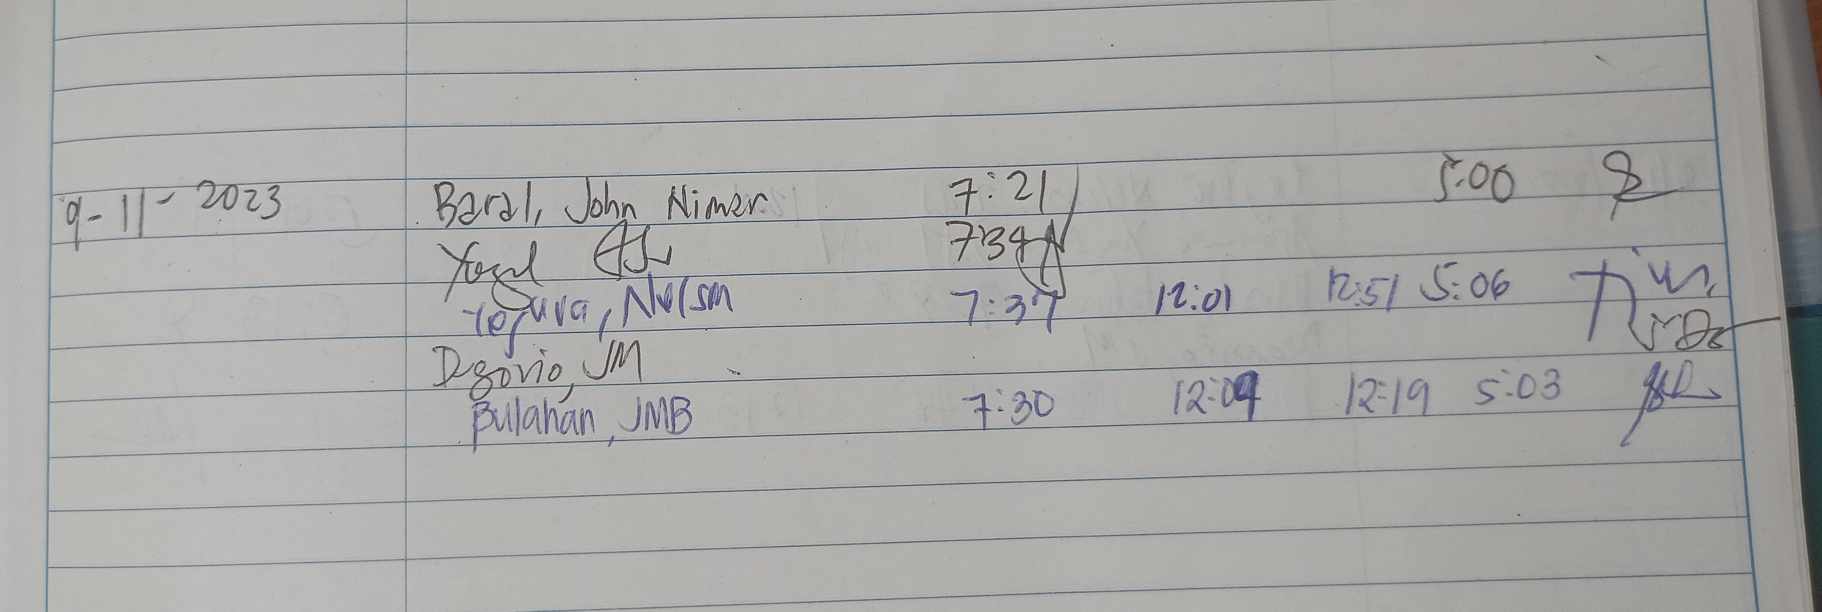 9-11-2023 Baral, John Nimer 7:21 5:00
7:34
Nelson 7:37 12:01 12:51 5:06
JM
Bulahan, JMB 7:30 12:09 12:19 5:03